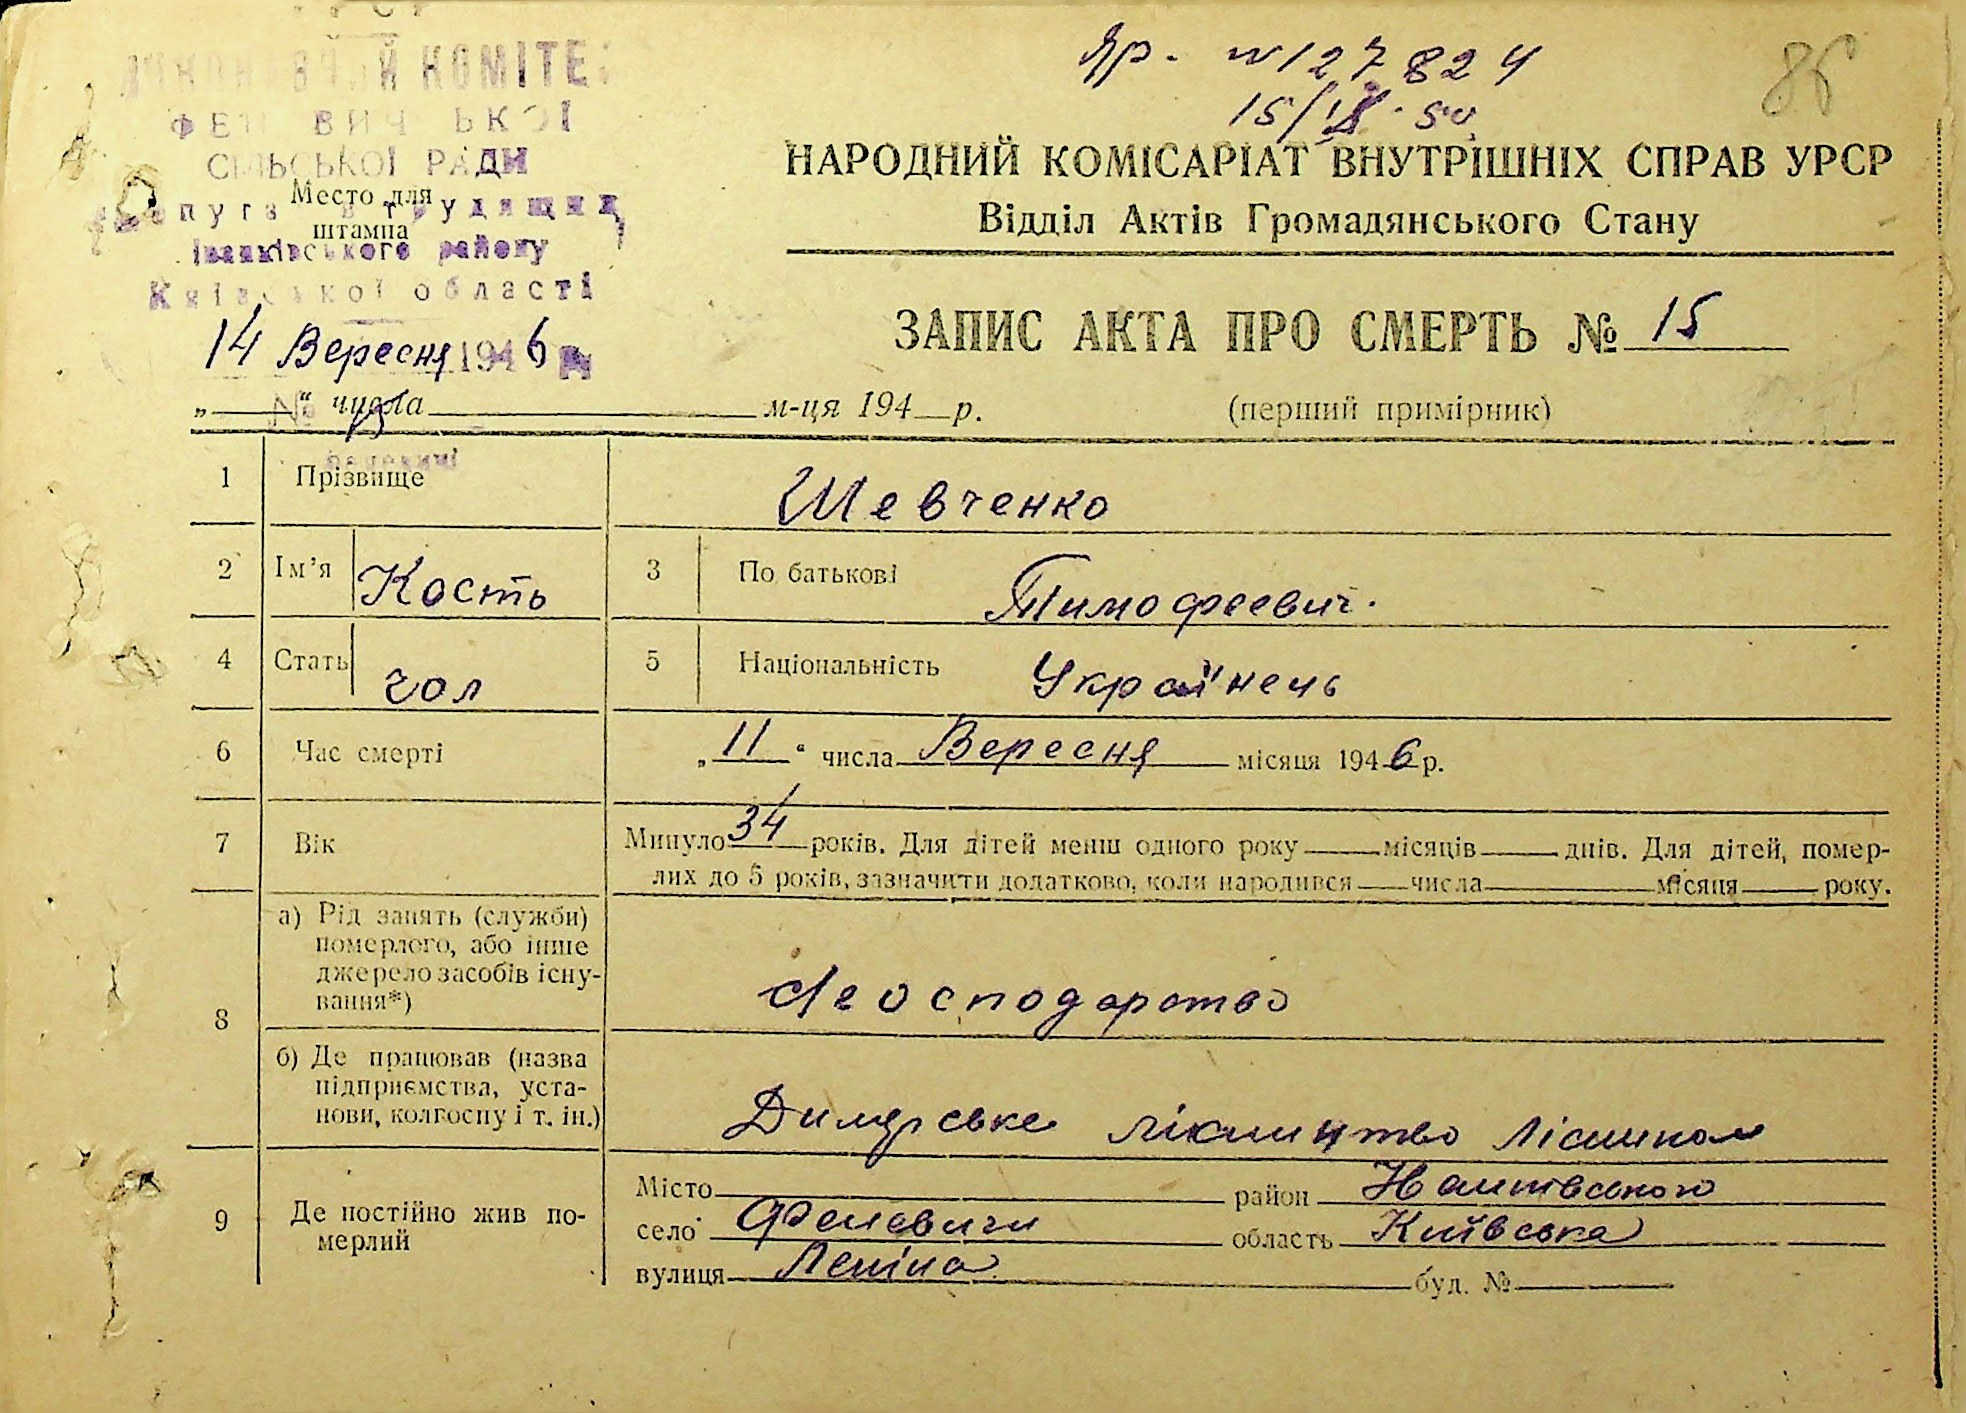 УРСР
ВИКОНАВЧИЙ КОМІТЕТ
СІЛЬСЬКОЇ РАДИ
депутатів трудящих
Іванківського району
Київської області
Место для
штампа
14 Вересня 1946 р
№ 15
Др. № 127824
15/IX-50
86
НАРОДНИЙ КОМІСАРІАТ ВНУТРІШНІХ СПРАВ УРСР
Відділ Актів Громадянського Стану
ЗАПИС АКТА ПРО СМЕРТЬ № 15
„ “ числа м-ця 194 р. (перший примірник)
1 Прізвище Шевченко
2 Ім’я Кость 3 По батькові Тимофеевич.
4 Стать чол 5 Національність Українець
6 Час смерті „11“ числа Вересня місяця 1946 р.
7 Вік Минуло 34 років. Для дітей менш одного року місяців днів. Для дітей, помер-
лих до 5 років, зазначити додатково, коли народився числа місяця року.
8 а) Рід занять (служби)
померлого, або інше
джерело засобів існу-
вання*)
господарство
б) Де працював (назва
підприємства, уста-
нови, колгоспу і т. ін.)
Димярське лісництво лісником
9 Де постійно жив по-
мерлий
Місто район
село Феневичи область Київська
вулиця Леніна буд. №